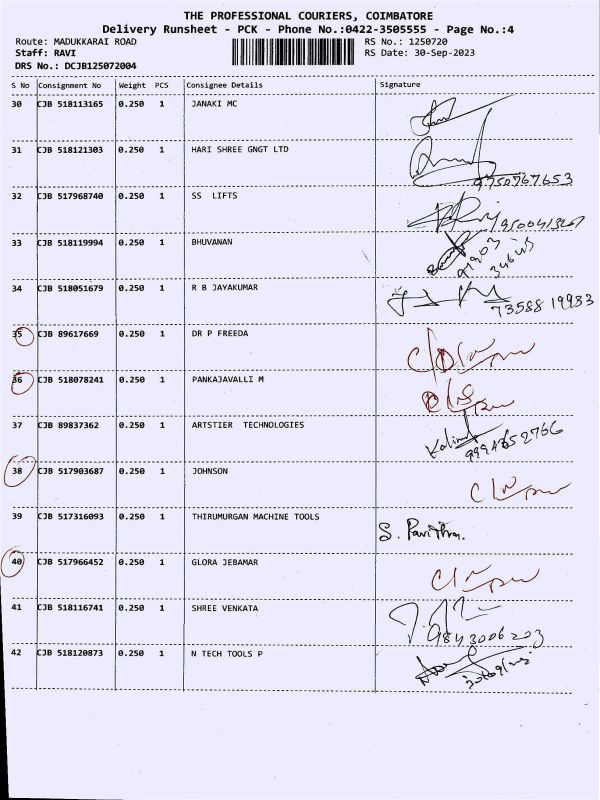 THE PROFESSIONAL COURIERS, COIMBATORE
Delivery Runsheet - PCK - Phone No.:0422-3505555 - Page No.:4
Route: MADUKKARAI ROAD
RS No.: 1250720
Staff: RAVI
RS Date: 30-Sep-2023
DRS No.: DCJB125072004
S No Consignment No Weight PCS Consignee Details Signature
30 CJB 518113165 0.250 1 JANAKI MC
31 CJB 518121303 0.250 1 HARI SHREE GNGT LTD
9750767653
32 CJB 517968740 0.250 1 SS LIFTS
9500413267
33 CJB 518119994 0.250 1 BHUVANAN
34 CJB 518051679 0.250 1 R B JAYAKUMAR
73588 19933
35 CJB 89617669 0.250 1 DR P FREEDA
36 CJB 518078241 0.250 1 PANKAJAVALLI M
37 CJB 89837362 0.250 1 ARTSTIER TECHNOLOGIES
38 CJB 517903687 0.250 1 JOHNSON
39 CJB 517316093 0.250 1 THIRUMURGAN MACHINE TOOLS S. Pavithra.
40 CJB 517966452 0.250 1 GLORA JEBAMAR
41 CJB 518116741 0.250 1 SHREE VENKATA
9843006203
42 CJB 518120873 0.250 1 N TECH TOOLS P